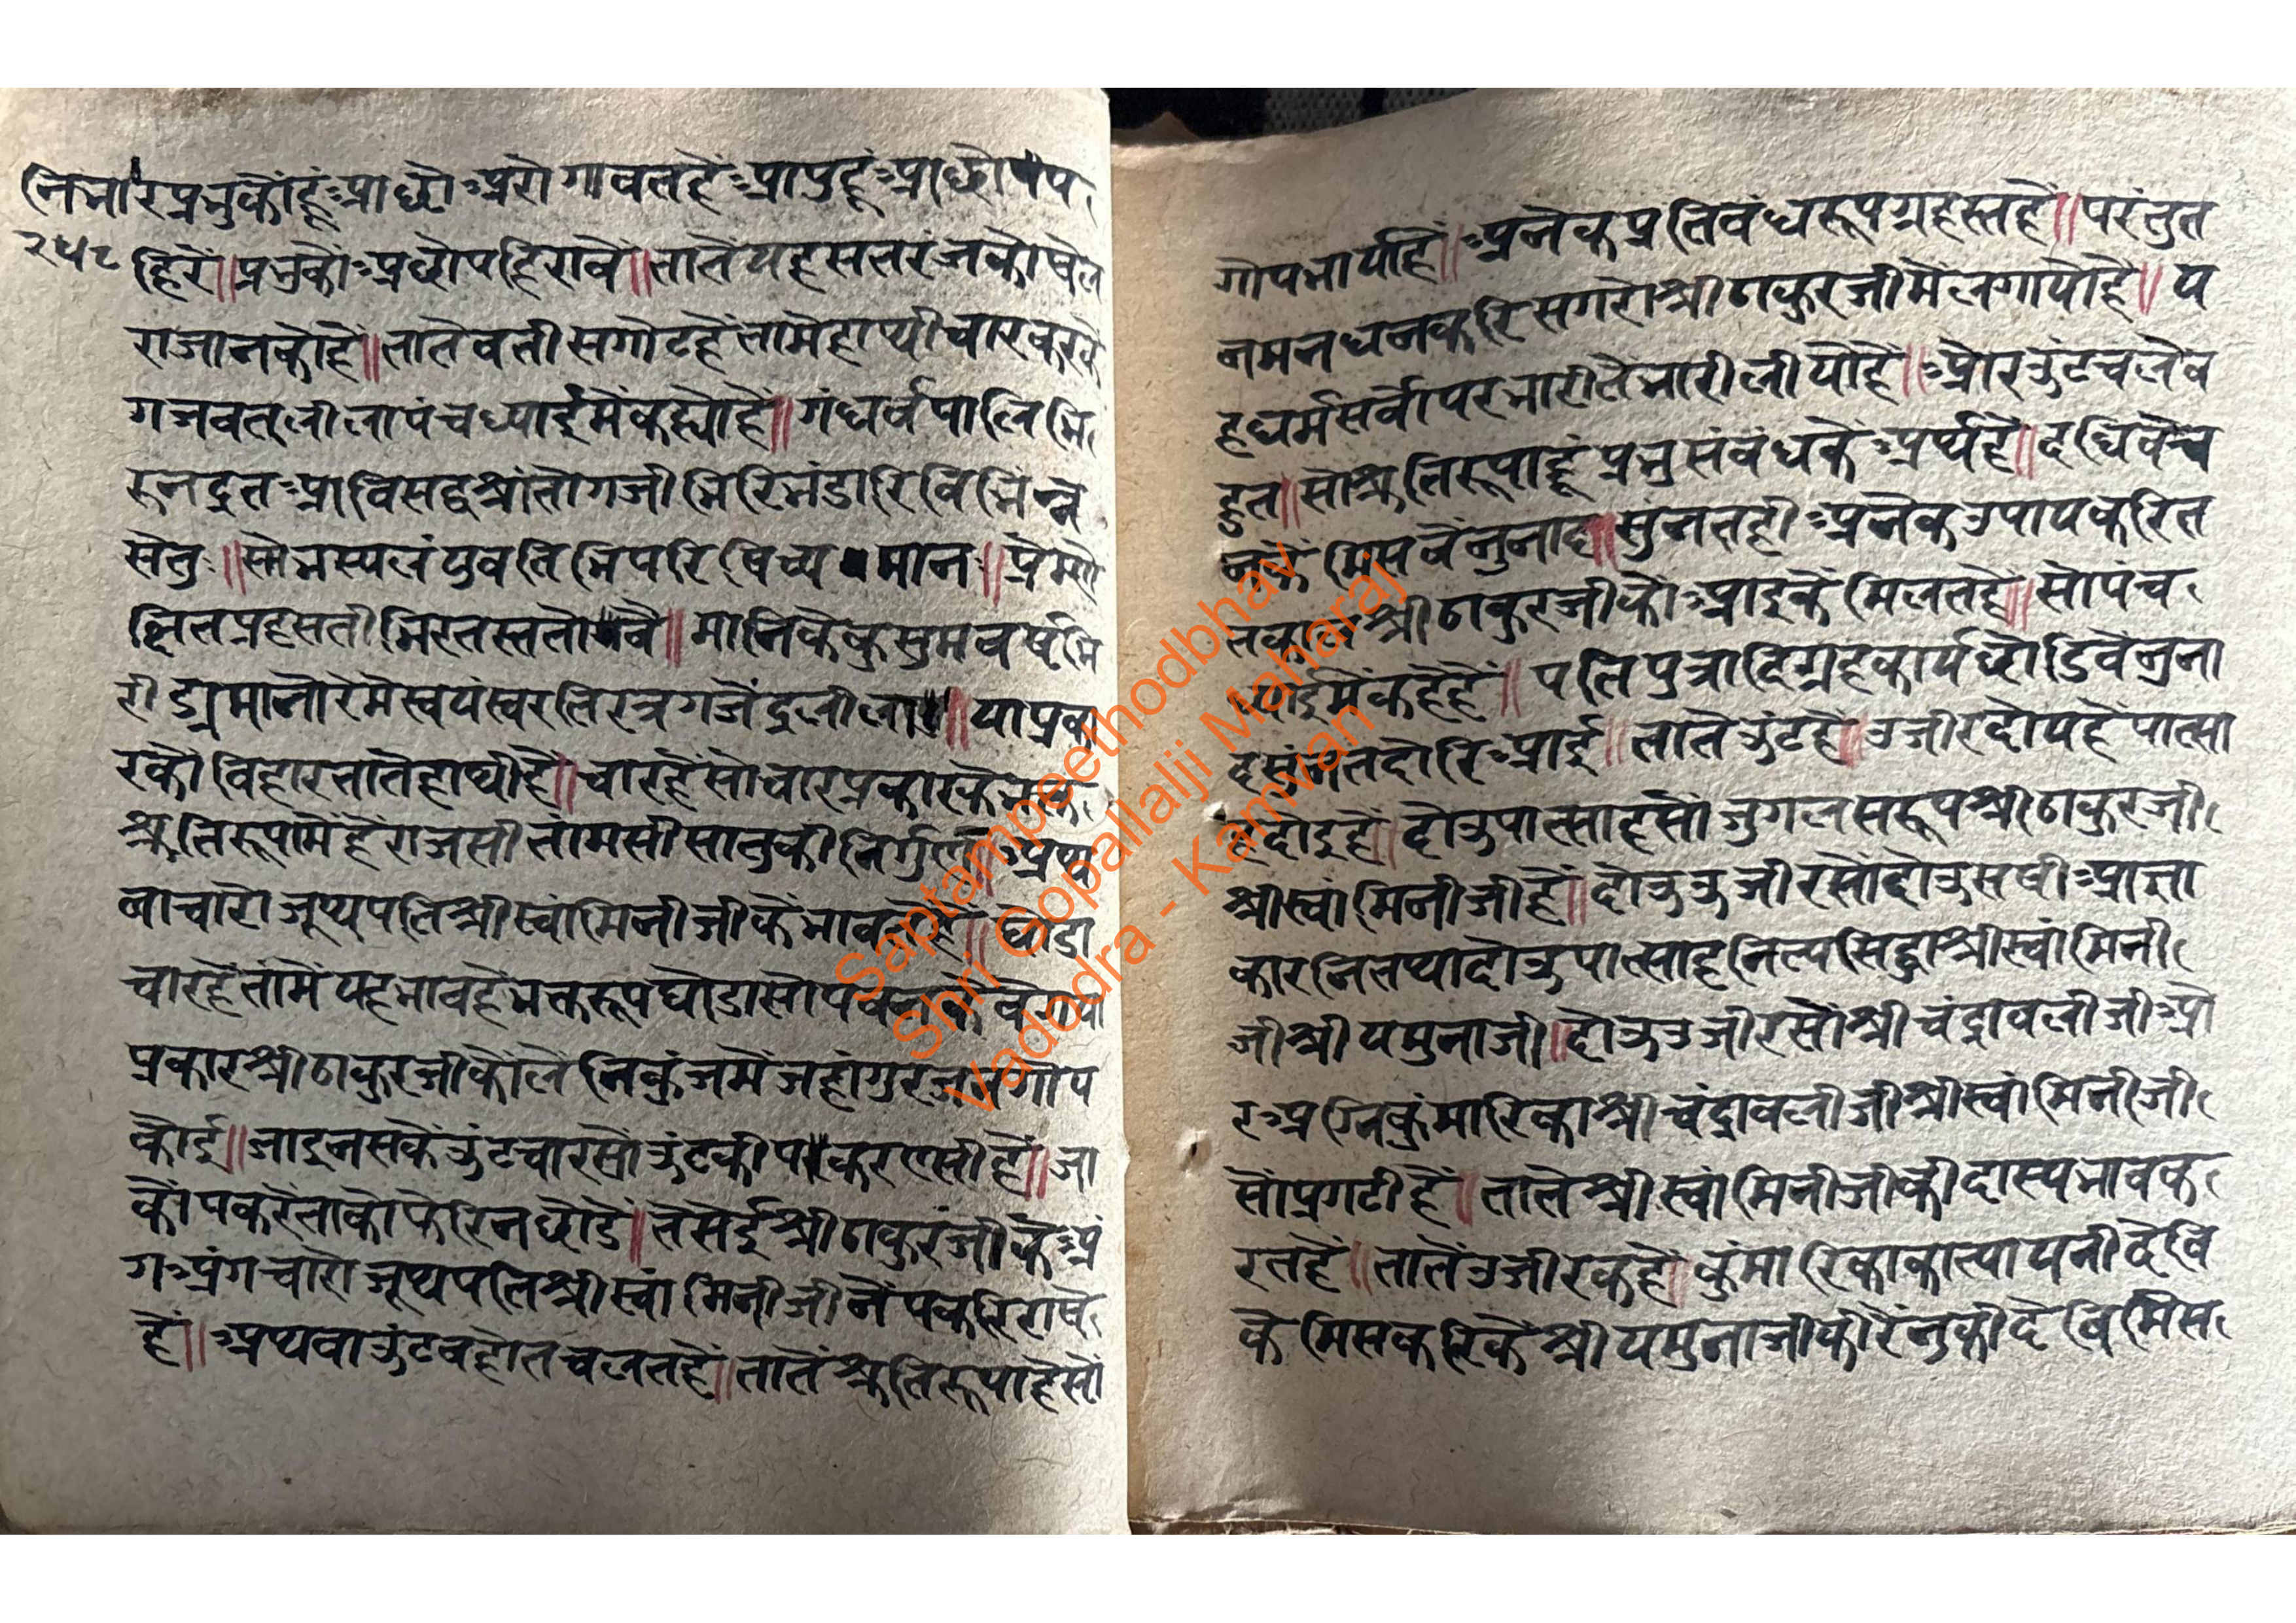 निभारप्रभुकौंहूंआछौअरोगावतहैंआपुहूंआछौपप
२५८
हिरैं॥प्रभुकौंअछौपहिरावैं॥तातैयहसतरंजकोषेल
राजानकोहै॥तातैबतीसगोटहैंतामेंहाथीचारकरकें
गजवतलीलापंचध्याईमेंकह्योहैं॥गंधर्वपालिभि
रुनद्रुतआविसद्वश्रांतोगजीभिरिभंडारिविभिंन्न
सेतुः॥सोंभस्यलंयुवतिभिपरिषिच्यमान॥प्रेमणे
क्षितप्रहसतीभिरतस्ततोवै॥मानिकैकुसुमवर्षभि
रीड्यमानोरेमेस्वयंस्वरतिरत्रगजेंद्रलीला॥याप्रका
रकौविहारतातैहाथीहै॥चारहैंसोचारप्रकारकेभक्त
श्रुतिरूपामेंहैंराजसीतांमसीसातुकीनिर्गुण॥अथ
वाचारोजूथपतिश्रीस्वांमिनीजीकेंभावतेहै॥घोडा
चारहैंतांमेंयहभावहैभक्तरूपघोडासोपवनकेवेगया
प्रकारश्रीठाकुरजीकौलैंनिकुंजमेंजहांगुरजनगोप
कोई॥जाइनसकेंउंटचारसोउंटकीपकरएसीहै॥जा
कौंपकरेंताकोफेरिनछौडें॥तेंसेईश्रीठाकुरजीकेअं
गअंगचारोजूथपतिश्रीस्वांमिनीजीनैंपकरिराषे
हैं॥अथवाउंटबहोतचलतहैं॥तातेंश्रुतिरूपाहैसों
गोपभार्याहै॥अनेकप्रतिबंधरूपग्रहस्तहैं॥परंतुत
नमनधनकरिसगरोश्रीठाकुरजीमेंलगायोहै॥य
हधर्मसर्वोपरभारीतैभारीलीयोहैं॥औरउंटचलेब
हुत॥सोश्रुतिरूपाहूंप्रभुसंबंधकेअर्थहैं॥दधिबेच
नकेंमिसबेंनुनाद॥सुंनतहीअनेकउपायकरित
तकालश्रीठाकुरजीकौआइकेंमिलतहै॥सोपंच
ध्याईमेंकहेहैं॥पतिपुत्रादिग्रहकार्यछोडिबेंनुना
दसुंनतदोरिआई॥तातेउंटहै॥उजीरदोयहैंपात्सा
हदोइहै॥दोउपात्साहसोंजुगलसरूपश्रीठाकुरजी
श्रीस्वांमिनीजीहैं॥दोउउजीरसोंदोउसषीआत्ता
कारनितथादोउपात्साहनित्यसिद्धाश्रीस्वांमिनी
जीश्रीयमुनाजी॥दोउउजीरसोंश्रीचंद्रावलीजीओ
रअग्निकुंमारिकाश्रीचंद्रावलीजीश्रीस्वांमिनीजी
सोंप्रगटीहैं॥तातेश्रीस्वांमिनीजीकीदास्यभावक
रतहैं॥तातेंउजीरकहै॥कुंमारिकाकात्यायनीदेवि
केमिसकरिकेंश्रीयमुनाजीकीरेंनुकीदेबिमिस
Saptampeethodbhav
Shri Gopallalji Maharaj
Vadodra - Kamvan